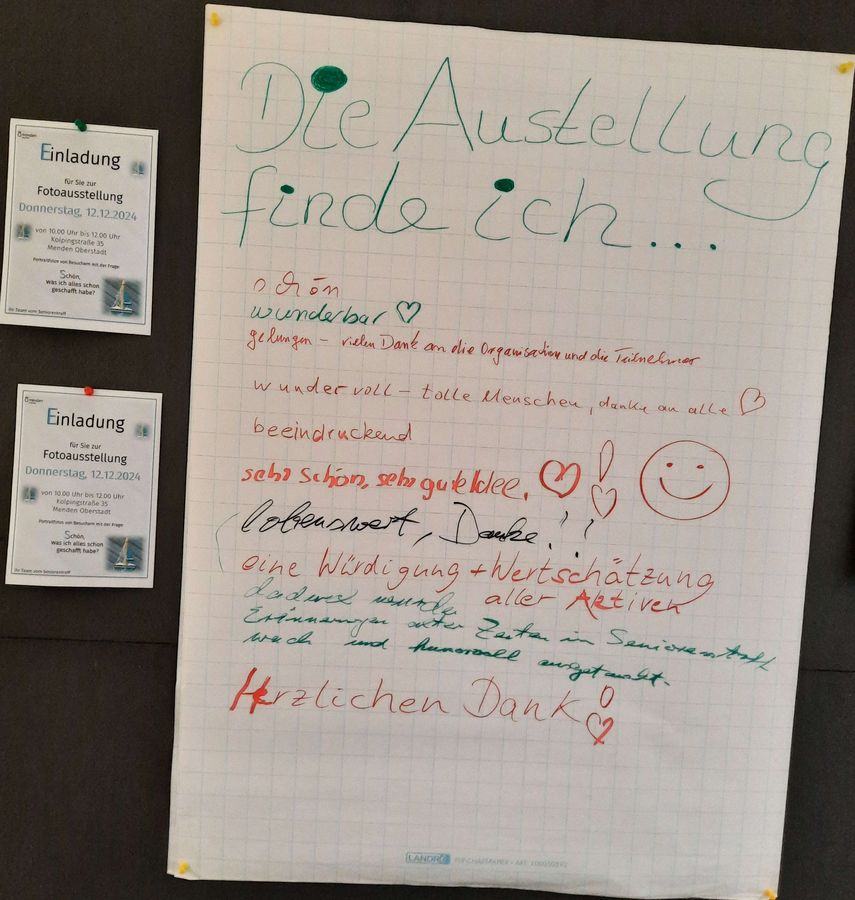 Die Austellung
finde ich...
schön
wunderbar
gelungen – vielen Dank an die Organisation und die Teilnehmer
wundervoll – tolle Menschen, danke an alle
beeindruckend
sehr schön, sehr gute Idee.
lobenswert, Danke!
eine Würdigung + Wertschätzung
aller Aktiven
dadurch wurde
Erinnerungen alter Zeiten im Seniorentreff
wach und humorvoll ausgetauscht.
Herzlichen Dank!
LANDRÉ FLIPCHARTPAPIER - ART. 100050592
menden
Einladung
für Sie zur
Fotoausstellung
Donnerstag, 12.12.2024
von 10.00 Uhr bis 12.00 Uhr
Kolpingstraße 35
Menden Oberstadt
Portraitfotos von Besuchern mit der Frage:
Schön,
was ich alles schon
geschafft habe?
Ihr Team vom Seniorentreff
menden
Einladung
für Sie zur
Fotoausstellung
Donnerstag, 12.12.2024
von 10.00 Uhr bis 12.00 Uhr
Kolpingstraße 35
Menden Oberstadt
Portraitfotos von Besuchern mit der Frage:
Schön,
was ich alles schon
geschafft habe?
Ihr Team vom Seniorentreff